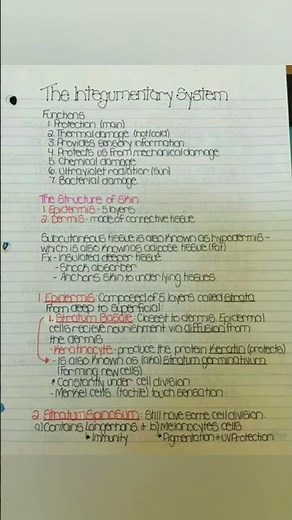 The Integumentary System
Functions
1. Protection (main)
2. Thermal damage (hot/cold)
3. Provides sensory information
4. Protects us from mechanical damage
5. Chemical damage
6. Ultraviolet radiation (sun)
7. Bacterial damage
The Structure of Skin
1. Epidermis - 5 layers
2. Dermis - made of connective tissue
Subcutaneous tissue is also known as hypodermis -
which is also known as adipose tissue (fat)
Fx - Insulated deeper tissue
- Shock absorber
- Anchors skin to underlying tissues
1. Epidermis: Composed of 5 layers called strata
From deep to superficial:
1. Stratum Basale: Closest to dermis. Epidermal
cells recieve nourishment via diffusion from
the dermis
- Keratinocyte - produce the protein Keratin (protects)
- is also known as (aka) stratum germinativum
(forming new cells)
* Constantly under cell division
- Merkel cells (tactile) touch sensation
2. Stratum Spinosum: Still have some cell division.
a) Contains Langerhans + b) Melanocytes cells
↳ Immunity ↳ Pigmentation + UV Protection